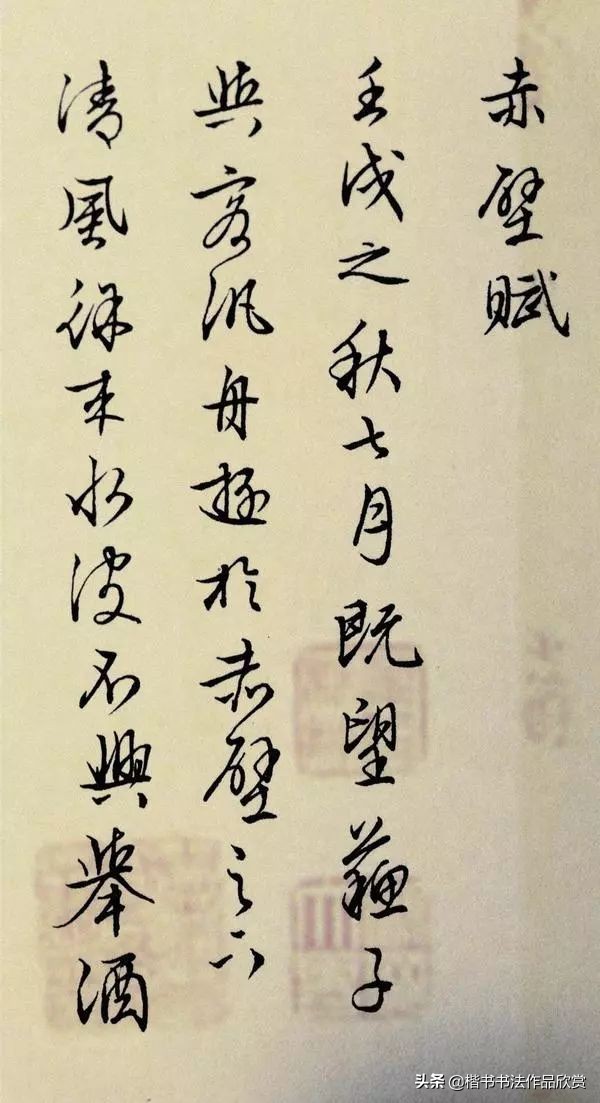 赤壁賦
壬戌之秋七月既望蘓子
與客汎舟遊於赤壁之下
清風徐來水波不興舉酒
头条 @楷书书法作品欣赏